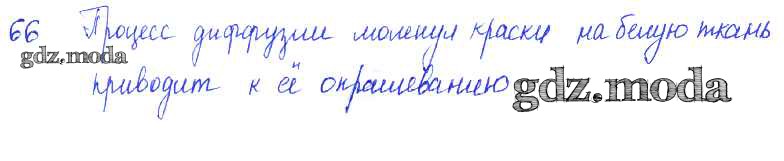 66 Процесс диффузии молекул краски на белую ткань
gdz.moda
приводит к её окрашеванию gdz.moda